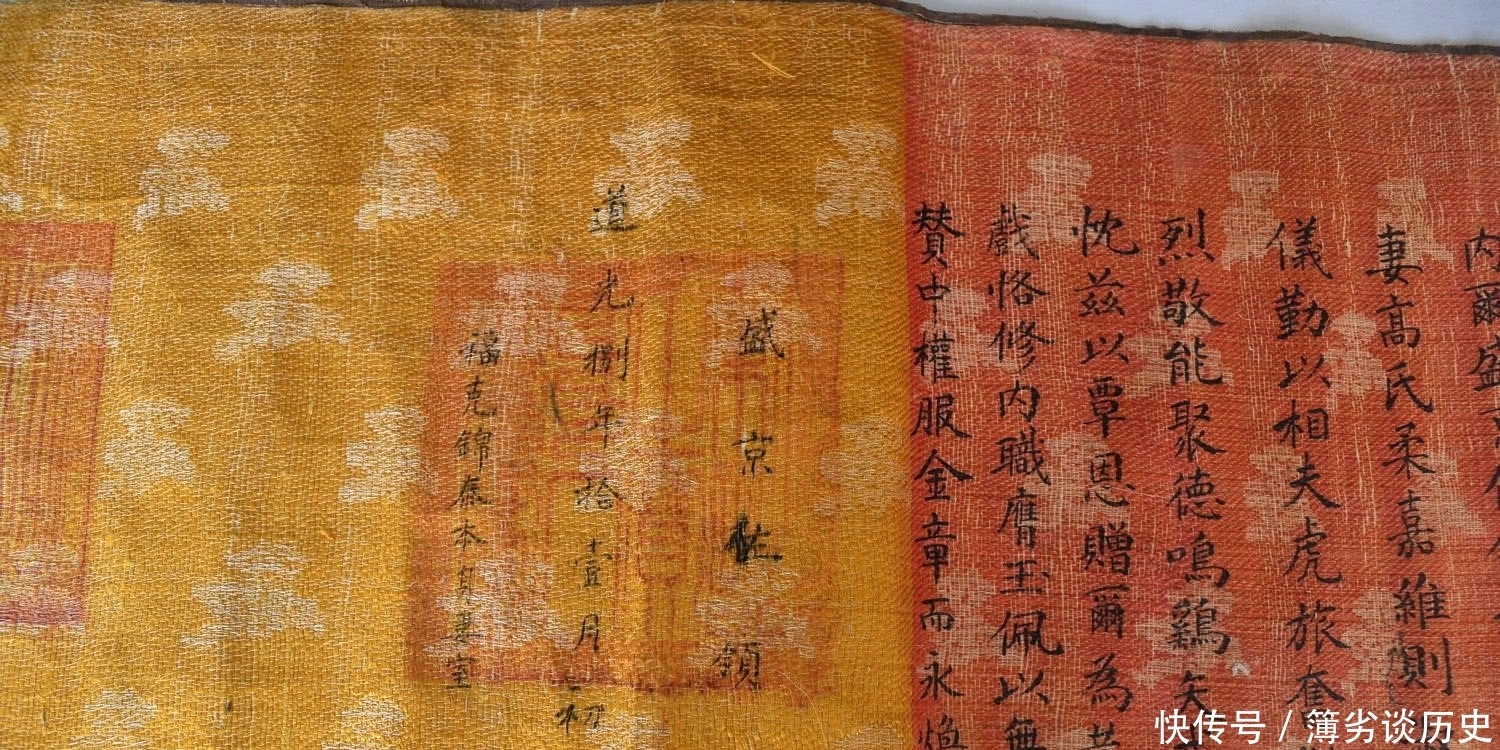 内爾盛
妻高氏柔嘉維則
儀勤以相夫虎旅奮
烈敬能聚德鳴鷄矢
忱兹以覃恩贈爾為
戲恪修内職膺玉佩以無
贊中權服金章而永煥
盛京佐領
道光捌年拾壹月初
福克錦 本身妻室
快传号 / 簿劣谈历史